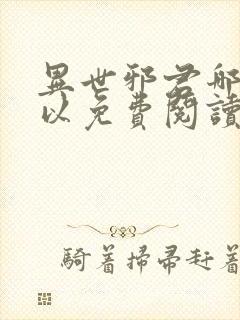 異世邪君哪
以免費閱讀
騎着掃帚赶着